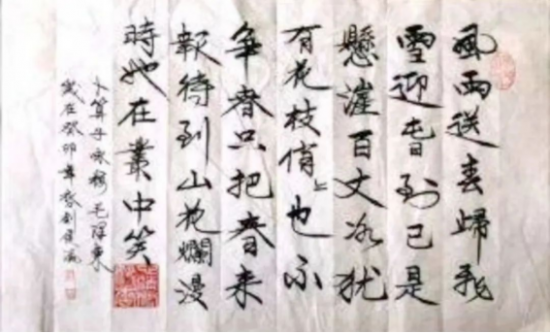 風雨送春歸飛
雪迎春到已是
懸崖百丈冰犹
有花枝俏〻也不
争春只把春来
報待到山花爛漫
時她在叢中笑
卜算子咏梅毛泽東
歲在癸卯年春